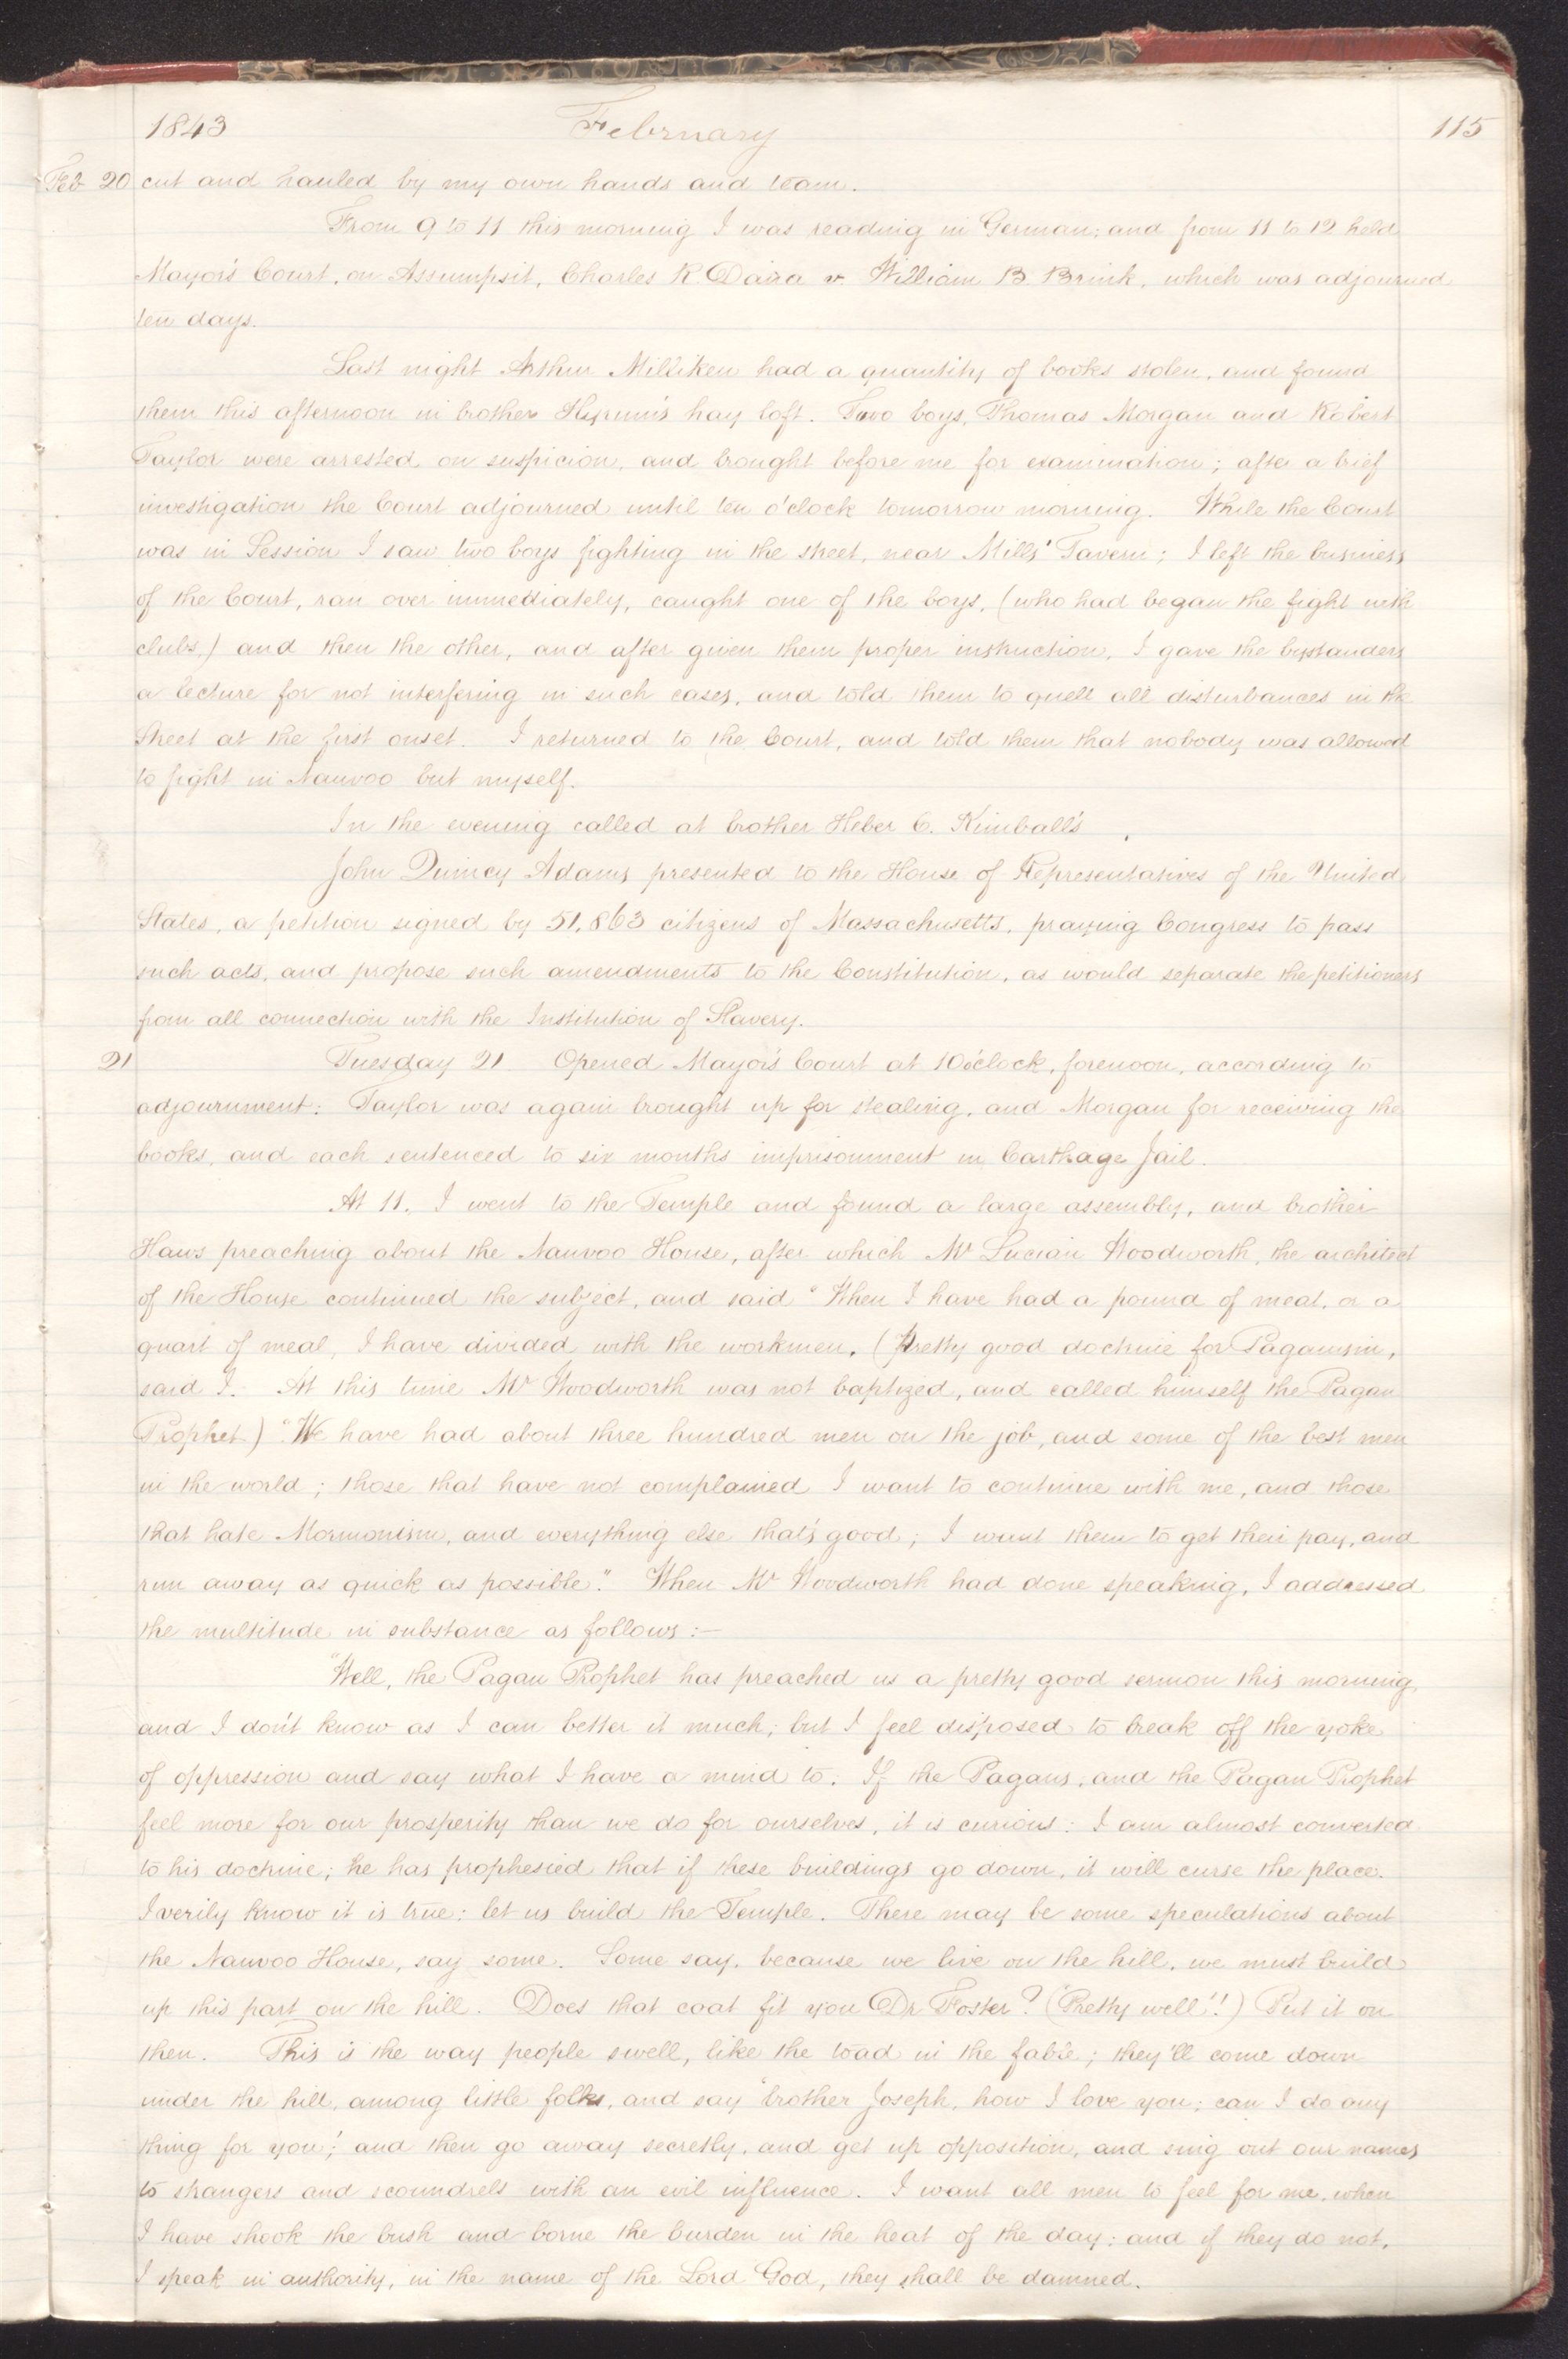 1843 February 115
Feb 20 cut and hauled by my own hands and team.
From 9 to 11 this morning I was reading in German; and from 11 to 12 held
Mayor's Court, on Assumpsit, Charles R. Dana v. William B. Brink, which was adjourned
ten days.
Last night Arthur Milliken had a quantity of books stolen, and found
them this afternoon in brother Hyrum's hay loft. Two boys, Thomas Morgan and Robert
Taylor were arrested on suspicion, and brought before me for examination; after a brief
investigation the Court adjourned until ten o'clock tomorrow morning. While the Court
was in Session I saw two boys fighting in the street, near Mills' Tavern; I left the business
of the Court, ran over immediately, caught one of the boys, (who had began the fight with
clubs,) and then the other, and after given them proper instruction, I gave the bystanders
a lecture for not interfering in such cases, and told them to quell all disturbances in the
Street at the first onset. I returned to the Court, and told them that nobody was allowed
to fight in Nauvoo but myself.
In the evening called at brother Heber C. Kimball's.
John Quincy Adams presented to the House of Representatives of the United
States, a petition signed by 51,863 citizens of Massachusetts, praying Congress to pass
such acts, and propose such amendments to the Constitution, as would separate the petitioners
from all connection with the Institution of Slavery.
21 Tuesday 21 Opened Mayor's Court at 10 o'clock, forenoon, according to
adjournment: Taylor was again brought up for stealing, and Morgan for receiving the
books, and each sentenced to six months imprisonment in Carthage Jail.
At 11. I went to the Temple and found a large assembly, and brother
Haws preaching about the Nauvoo House, after which Mr Lucian Woodworth, the architect
of the House continued the subject, and said "When I have had a pound of meat, or a
quart of meal, I have divided with the workmen. (Pretty good doctrine for Paganism,
said I. At this time Mr Woodworth was not baptized, and called himself the Pagan
Prophet) "We have had about three hundred men on the job, and some of the best men
in the world; those that have not complained I want to continue with me, and those
that hate Mormonism, and everything else that's good; I want them to get their pay, and
run away as quick as possible." When Mr Woodworth had done speaking, I addressed
the multitude in substance as follows:—
"Well, the Pagan Prophet has preached us a pretty good sermon this morning,
and I don't know as I can better it much; but I feel disposed to break off the yoke
of oppression and say what I have a mind to. If the Pagans, and the Pagan Prophet
feel more for our prosperity than we do for ourselves, it is curious: I am almost converted
to his doctrine; he has prophesied that if these buildings go down, it will curse the place.
I verily know it is true: let us build the Temple. There may be some speculations about
the Nauvoo House, say some. Some say, because we live on the hill, we must build
up this part on the hill. Does that coat fit you Dr Foster? ("Pretty well"!) Put it on
then. This is the way people swell, like the toad in the fable; they'll come down
under the hill, among little folks, and say "brother Joseph, how I love you; can I do any
thing for you", and then go away secretly, and get up opposition, and sing out our names
to strangers and scoundrels with an evil influence. I want all men to feel for me, when
I have shook the bush and borne the burden in the heat of the day; and if they do not,
I speak in authority, in the name of the Lord God, they shall be damned.